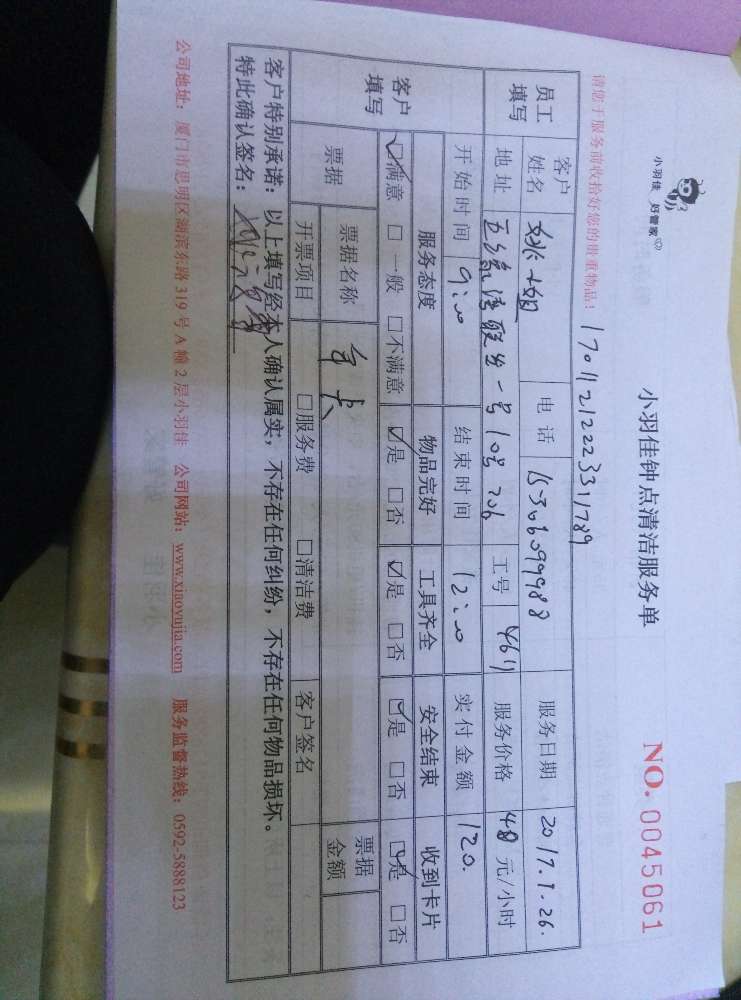 小羽佳 好管家
小羽佳钟点清洁服务单
NO. 0045061
请您于服务前收拾好您的贵重物品！ 17011212223311789
员工填写 客户姓名 姚小姐 电话 15306099988 服务日期 2017.1.26.
地址 联发一号10号206 工号 4611 服务价格 48 元/小时
开始时间 9:00 结束时间 12:00 实付金额 120.
客户填写 服务态度 物品完好 工具齐全 安全结束 收到卡片
☑满意 □一般 □不满意 ☑是 □否 ☑是 □否 ☑是 □否 ☑是 □否
票据 票据名称 年卡 票据金额
开票项目 □服务费 □清洁费 客户签名
客户特别承诺：以上填写经本人确认属实，不存在任何纠纷，不存在任何物品损坏。
特此确认签名：
公司地址：厦门市思明区湖滨东路319号A幢2层小羽佳 公司网站：www.xiaoyujia.com 服务监督热线：0592-5888123